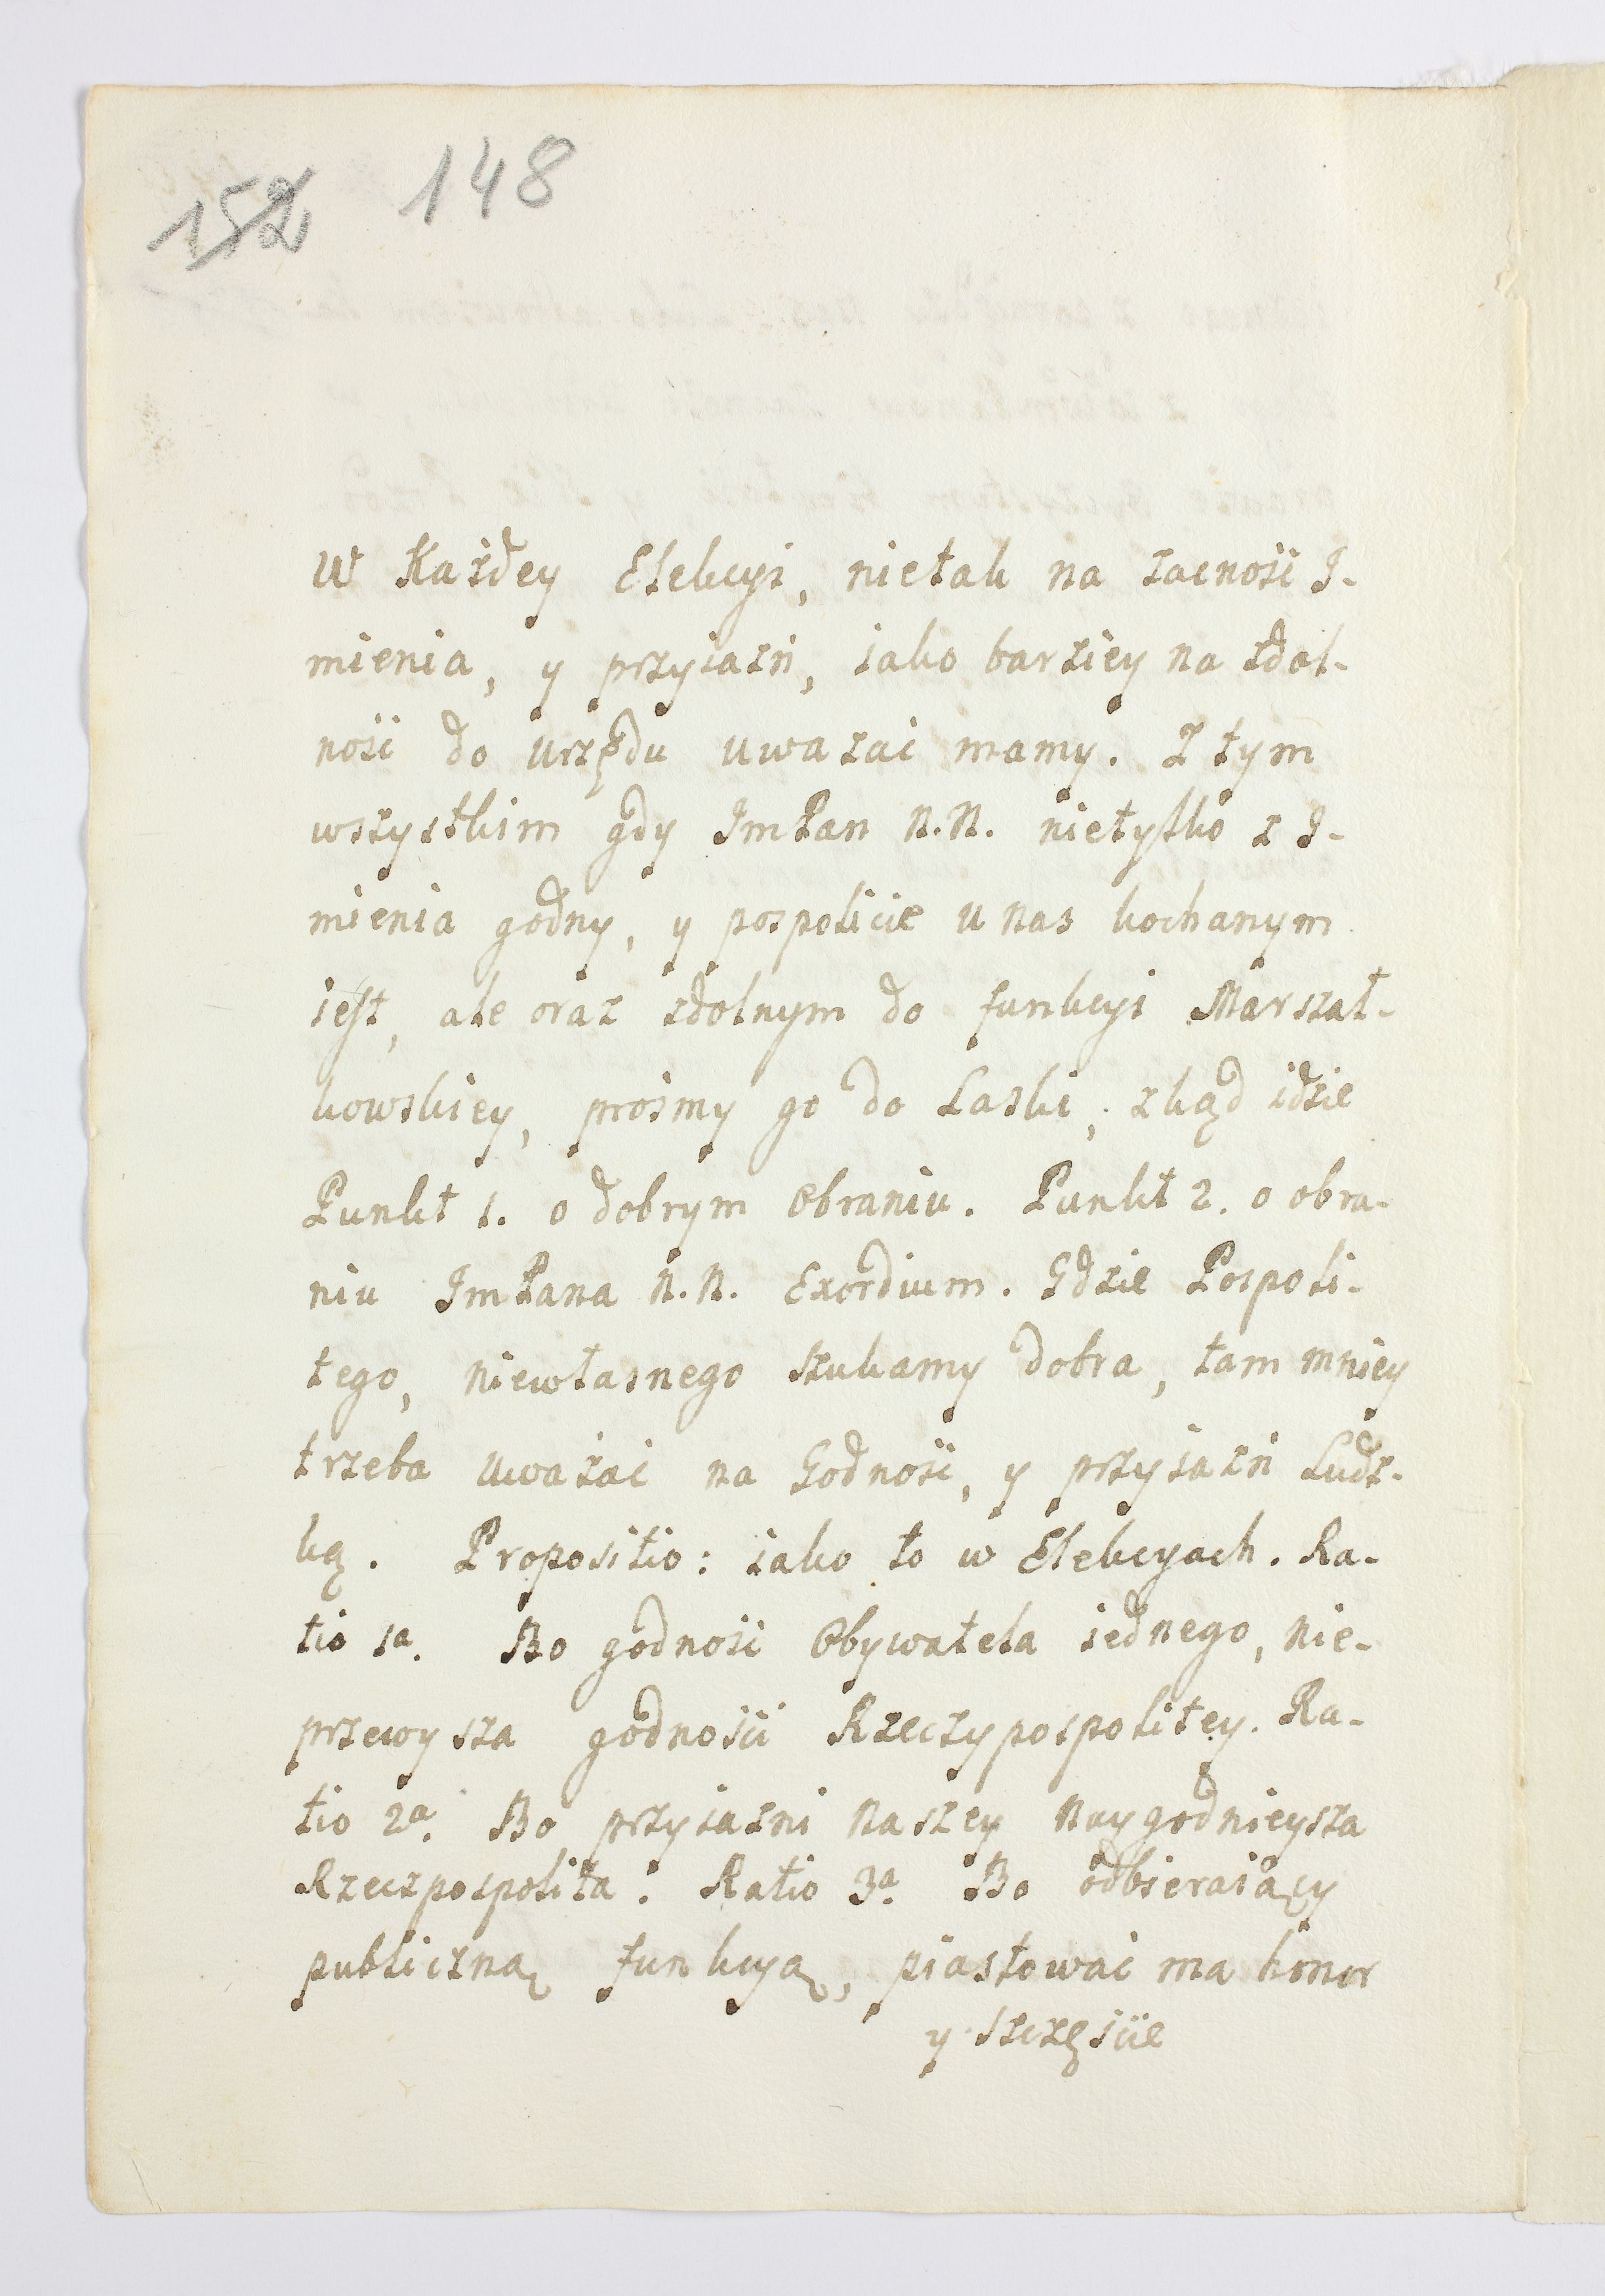 152 148
W Każdey Elekcyi, nietak na zacność I-
mienia, y przyiaźń, iako barziey na zdol-
ność do urzędu uważać mamy. Z tym
wszystkim gdy ImPan N.N. nietylko z I-
mienia godny, y pospolicie u nas kochanym
iest, ale oraz zdolnym do funkcyi Marszał-
kowskiey, prośmy go do Laski, zkąd idzie
Punkt 1. o dobrym Obraniu. Punkt 2. o obra-
niu ImPana N.N. Exordium. Gdzie Pospoli-
tego, niewłasnego szukamy dobra, tam mniey
trzeba uważać na Godność, y przyiaźń Ludz-
ką. Propositio: iako to w Elekcyach. Ra-
tio 1a. Bo godność Obywatela iednego, nie-
przewysza godności Rzeczypospolitey. Ra-
tio 2a. Bo przyiaźni naszey naygodnieysza
Rzeczpospolita. Ratio 3a. Bo odbieraiący
publiczną funkcyą, piastować ma honor
y szczęście